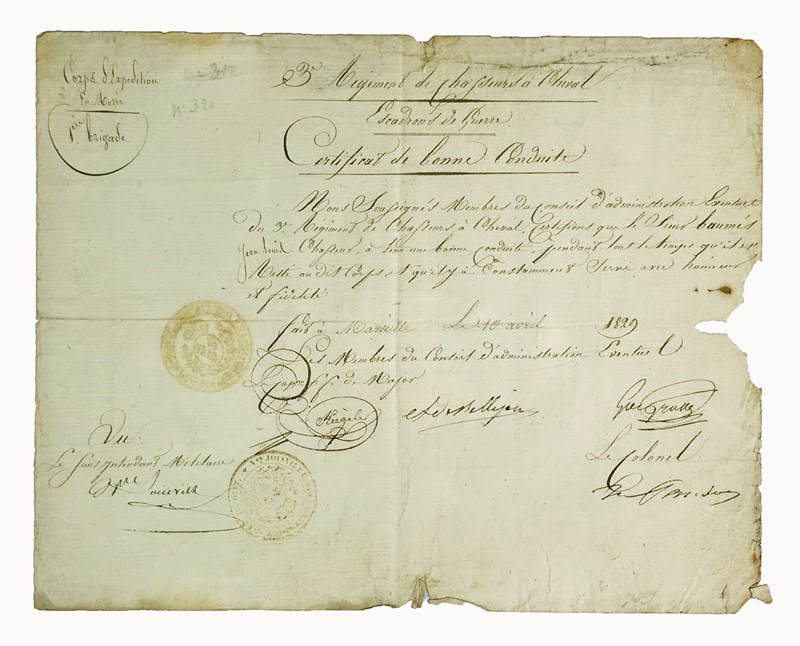 Corps d'Expedition
En Moree
1ere brigade.
N° 320
3e Regiment de Chasseurs à Cheval
Escadrons de Guerre
Certificat de bonne Conduite
Nous Soussignés Membres du Conseil d'administration Eventuel
du 3e Regiment de Chasseurs à Cheval, Certifions que le Sieur baumés
Jean louis Chasseur, à tenu une bonne conduite, pendant tout le temps qu'il est
Resté au dit Corps et qu'il y à Constamment Servi avec honneur
et fidelité
fait à Marseille Le 10 avril 1829
Les Membres du Conseil d'administration Eventuel
Le Capne ff. de Major
Vu
Le Sous intendant Militaire
Le Colonel
JOINVILLE